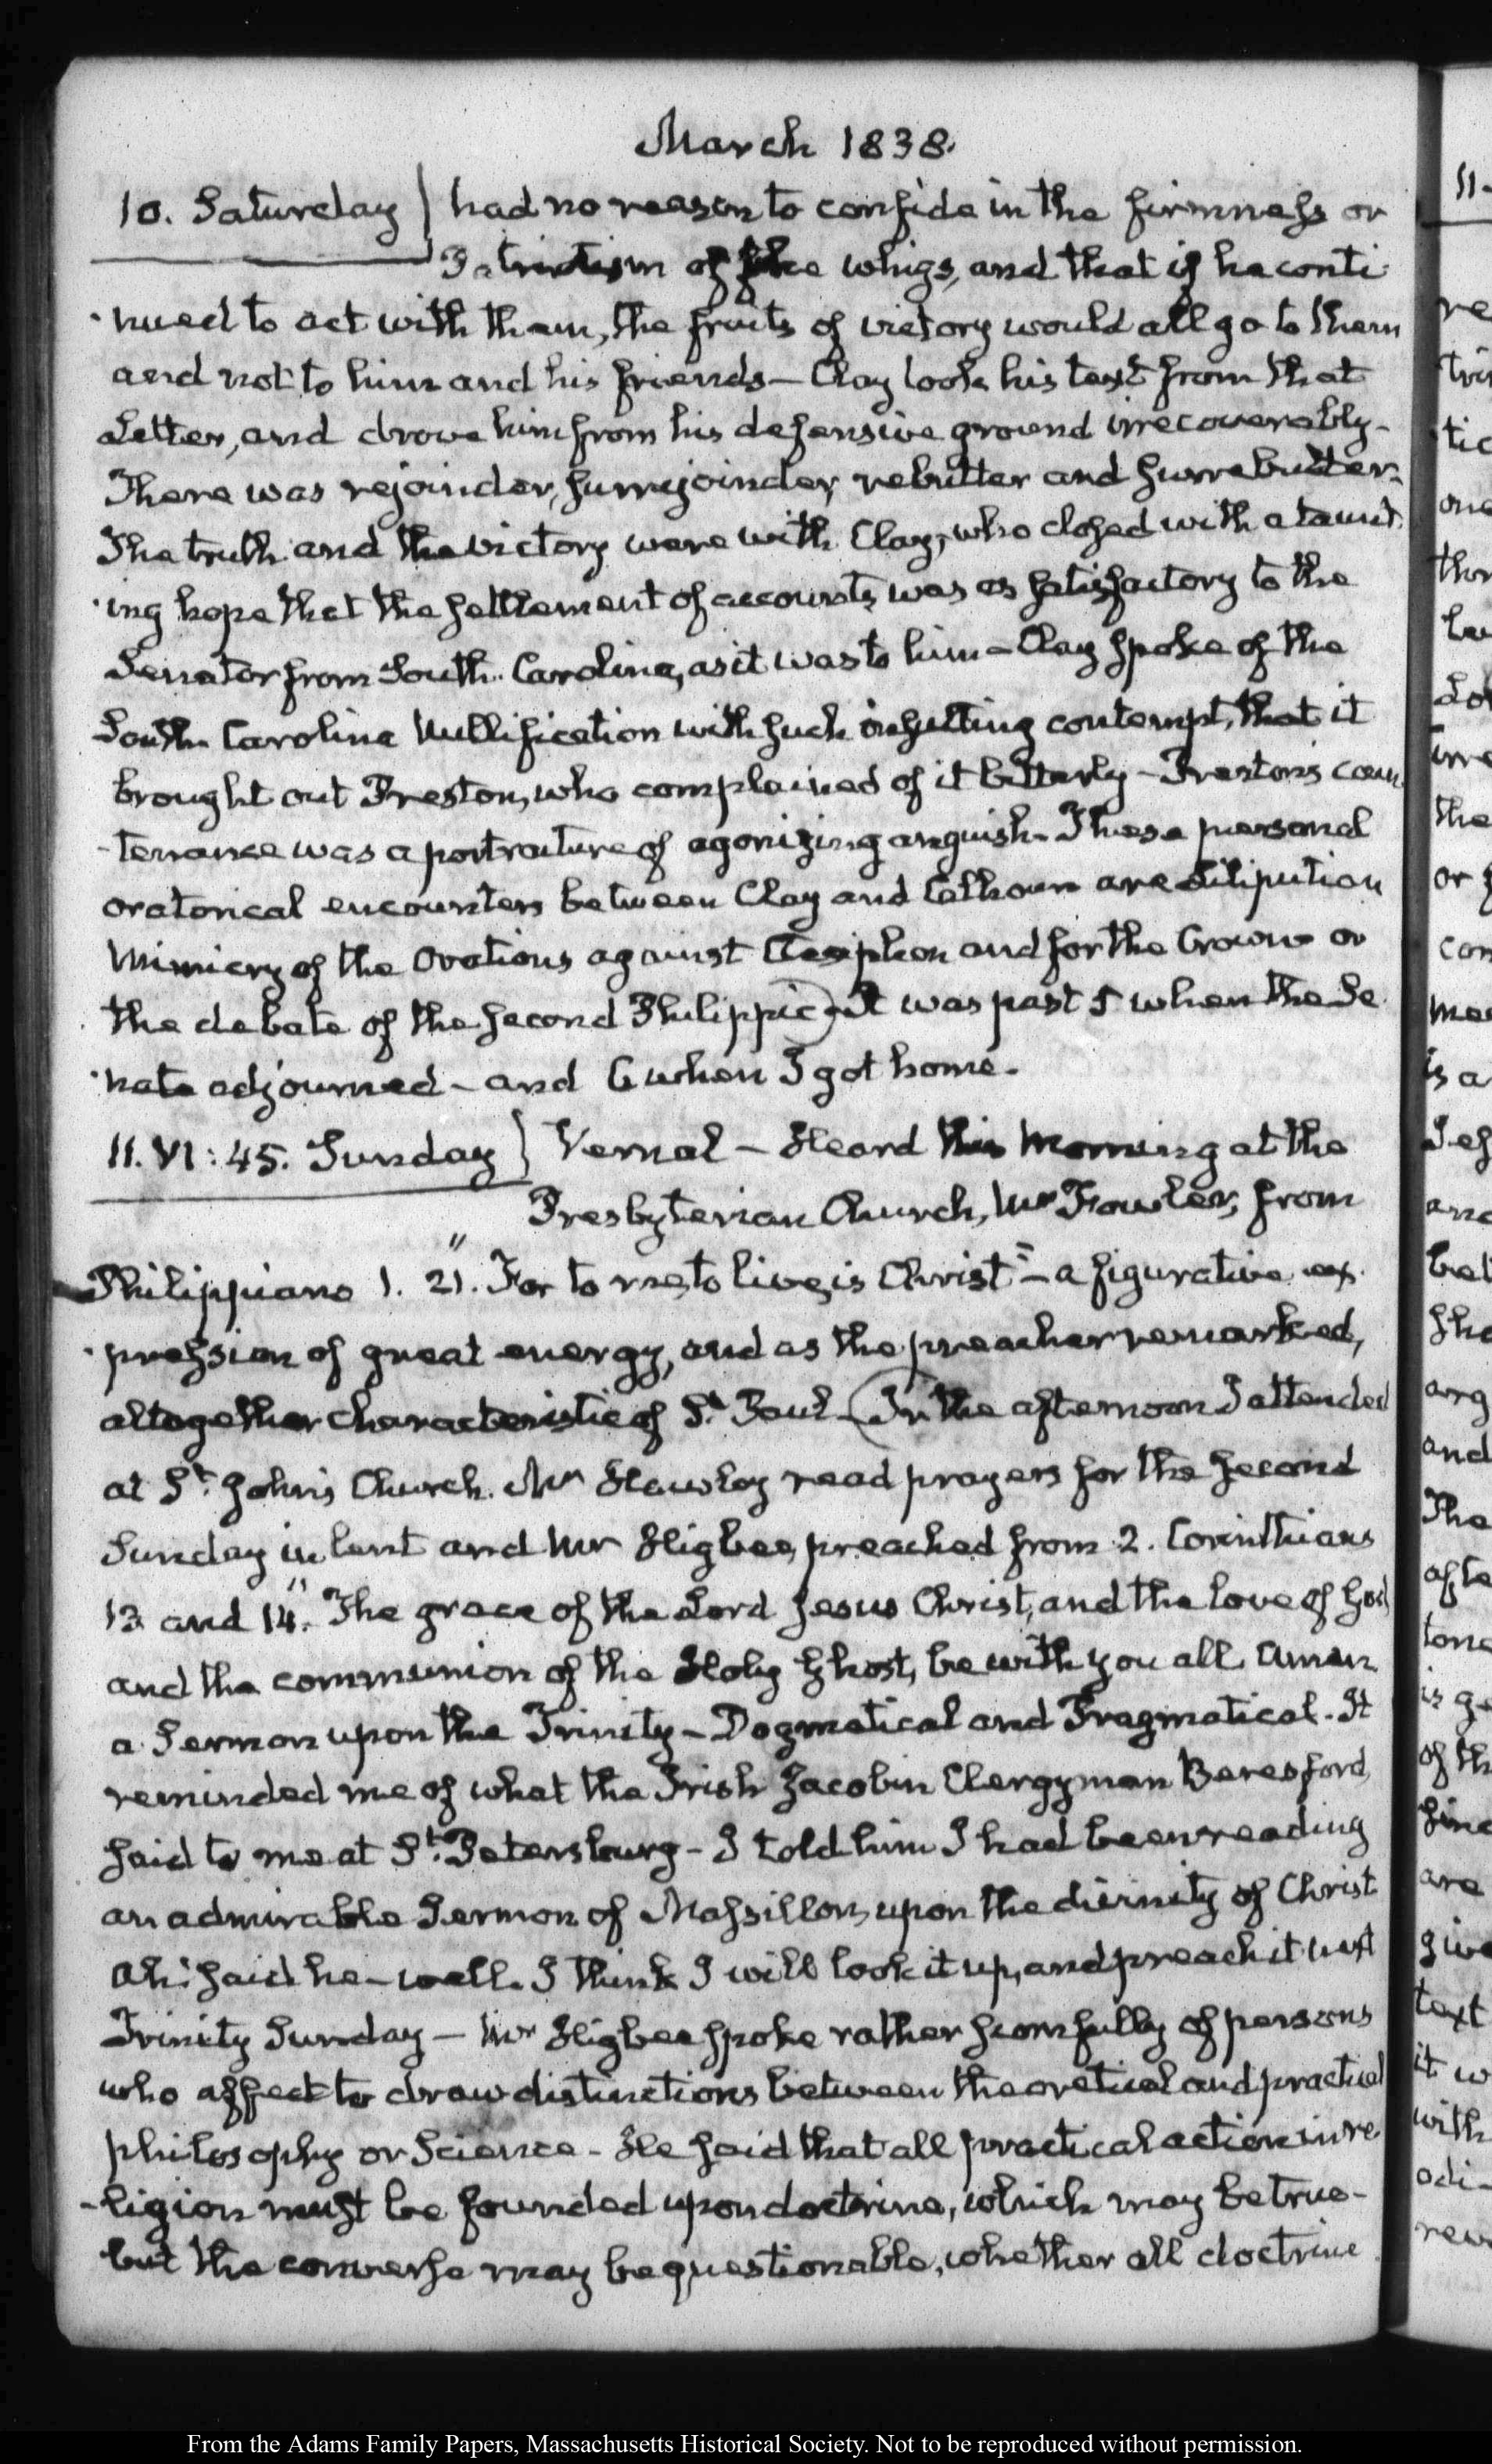 March 1838.
10. Saturday } had no reason to confide in the firmness or
Patriotism of the whigs, and that if he conti-
-nued to act with them, the fruits of victory would all go to them
and not to him and his friends — Clay took his text from that
Letter, and drove him from his defensive ground irrecoverably —
There was rejoinder, surrejoinder, rebutter and surrebutter.
The truth and the victory were with Clay, who closed with a taunt-
-ing hope that the settlement of accounts was as satisfactory to the
Senator from South Carolina, as it was to him — Clay spoke of the
South Carolina Nullification with such insulting contempt, that it
brought out Preston, who complained of it bitterly — Preston's coun
-tenance was a portraiture of agonizing anguish — These personal
oratorical encounters between Clay and Calhoun are Lilliputian
Mimicry of the Orations against Ctesiphon and for the Crown or
the debate of the second Philippic) It was past 5 when the Se
-nate adjourned — and 6 when I got home.
11. VI: 45. Sunday } Vernal — Heard this Morning at the
Presbyterian Church, Mr Fowler, from
Philippians 1. 21. "For to me to live, is Christ" — a figurative ex-
-pression of great energy, and as the preacher remarked,
altogether characteristic of St. Paul — (In the afternoon I attended
at St. John's Church. Mr Hawley read prayers for the second
Sunday in lent and Mr Higbee, preached from 2. Corinthians
13 and 14. "The grace of the Lord Jesus Christ, and the love of God
and the communion of the Holy Ghost, be with you all. Amen
a Sermon upon the Trinity — Dogmatical and Pragmatical. It
reminded me of what the Irish Jacobin Clergyman Beresford,
said to me at St. Petersburg — I told him I had been reading
an admirable Sermon of Massillon, upon the divinity of Christ
Ah! said he — well. I think I will look it up, and preach it next
Trinity Sunday — Mr Higbee spoke rather scornfully of persons
who affect to draw distinctions between theoretical and practical
philosophy or Science — He said that all practical action in re
-ligion must be founded upon doctrine, which may be true —
but the converse may be questionable, whether all doctrine
From the Adams Family Papers, Massachusetts Historical Society. Not to be reproduced without permission.